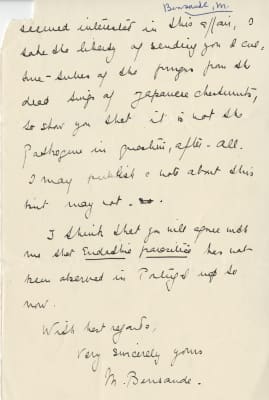 Bensaude, M.
seemed interested in this affair, I
take the liberty of sending you 2 cul-
ture-tubes of the fungus from the
dead twigs of Japanese chestnuts,
to show you that it is not the
Pathogene in question, after-all.
I may publish a note about this
but may not.
I think that you will agree with
me that Endothia parasitica has not
been observed in Portugal up to
now.
With best regards,
Very sincerely yours
M. Bensaude.